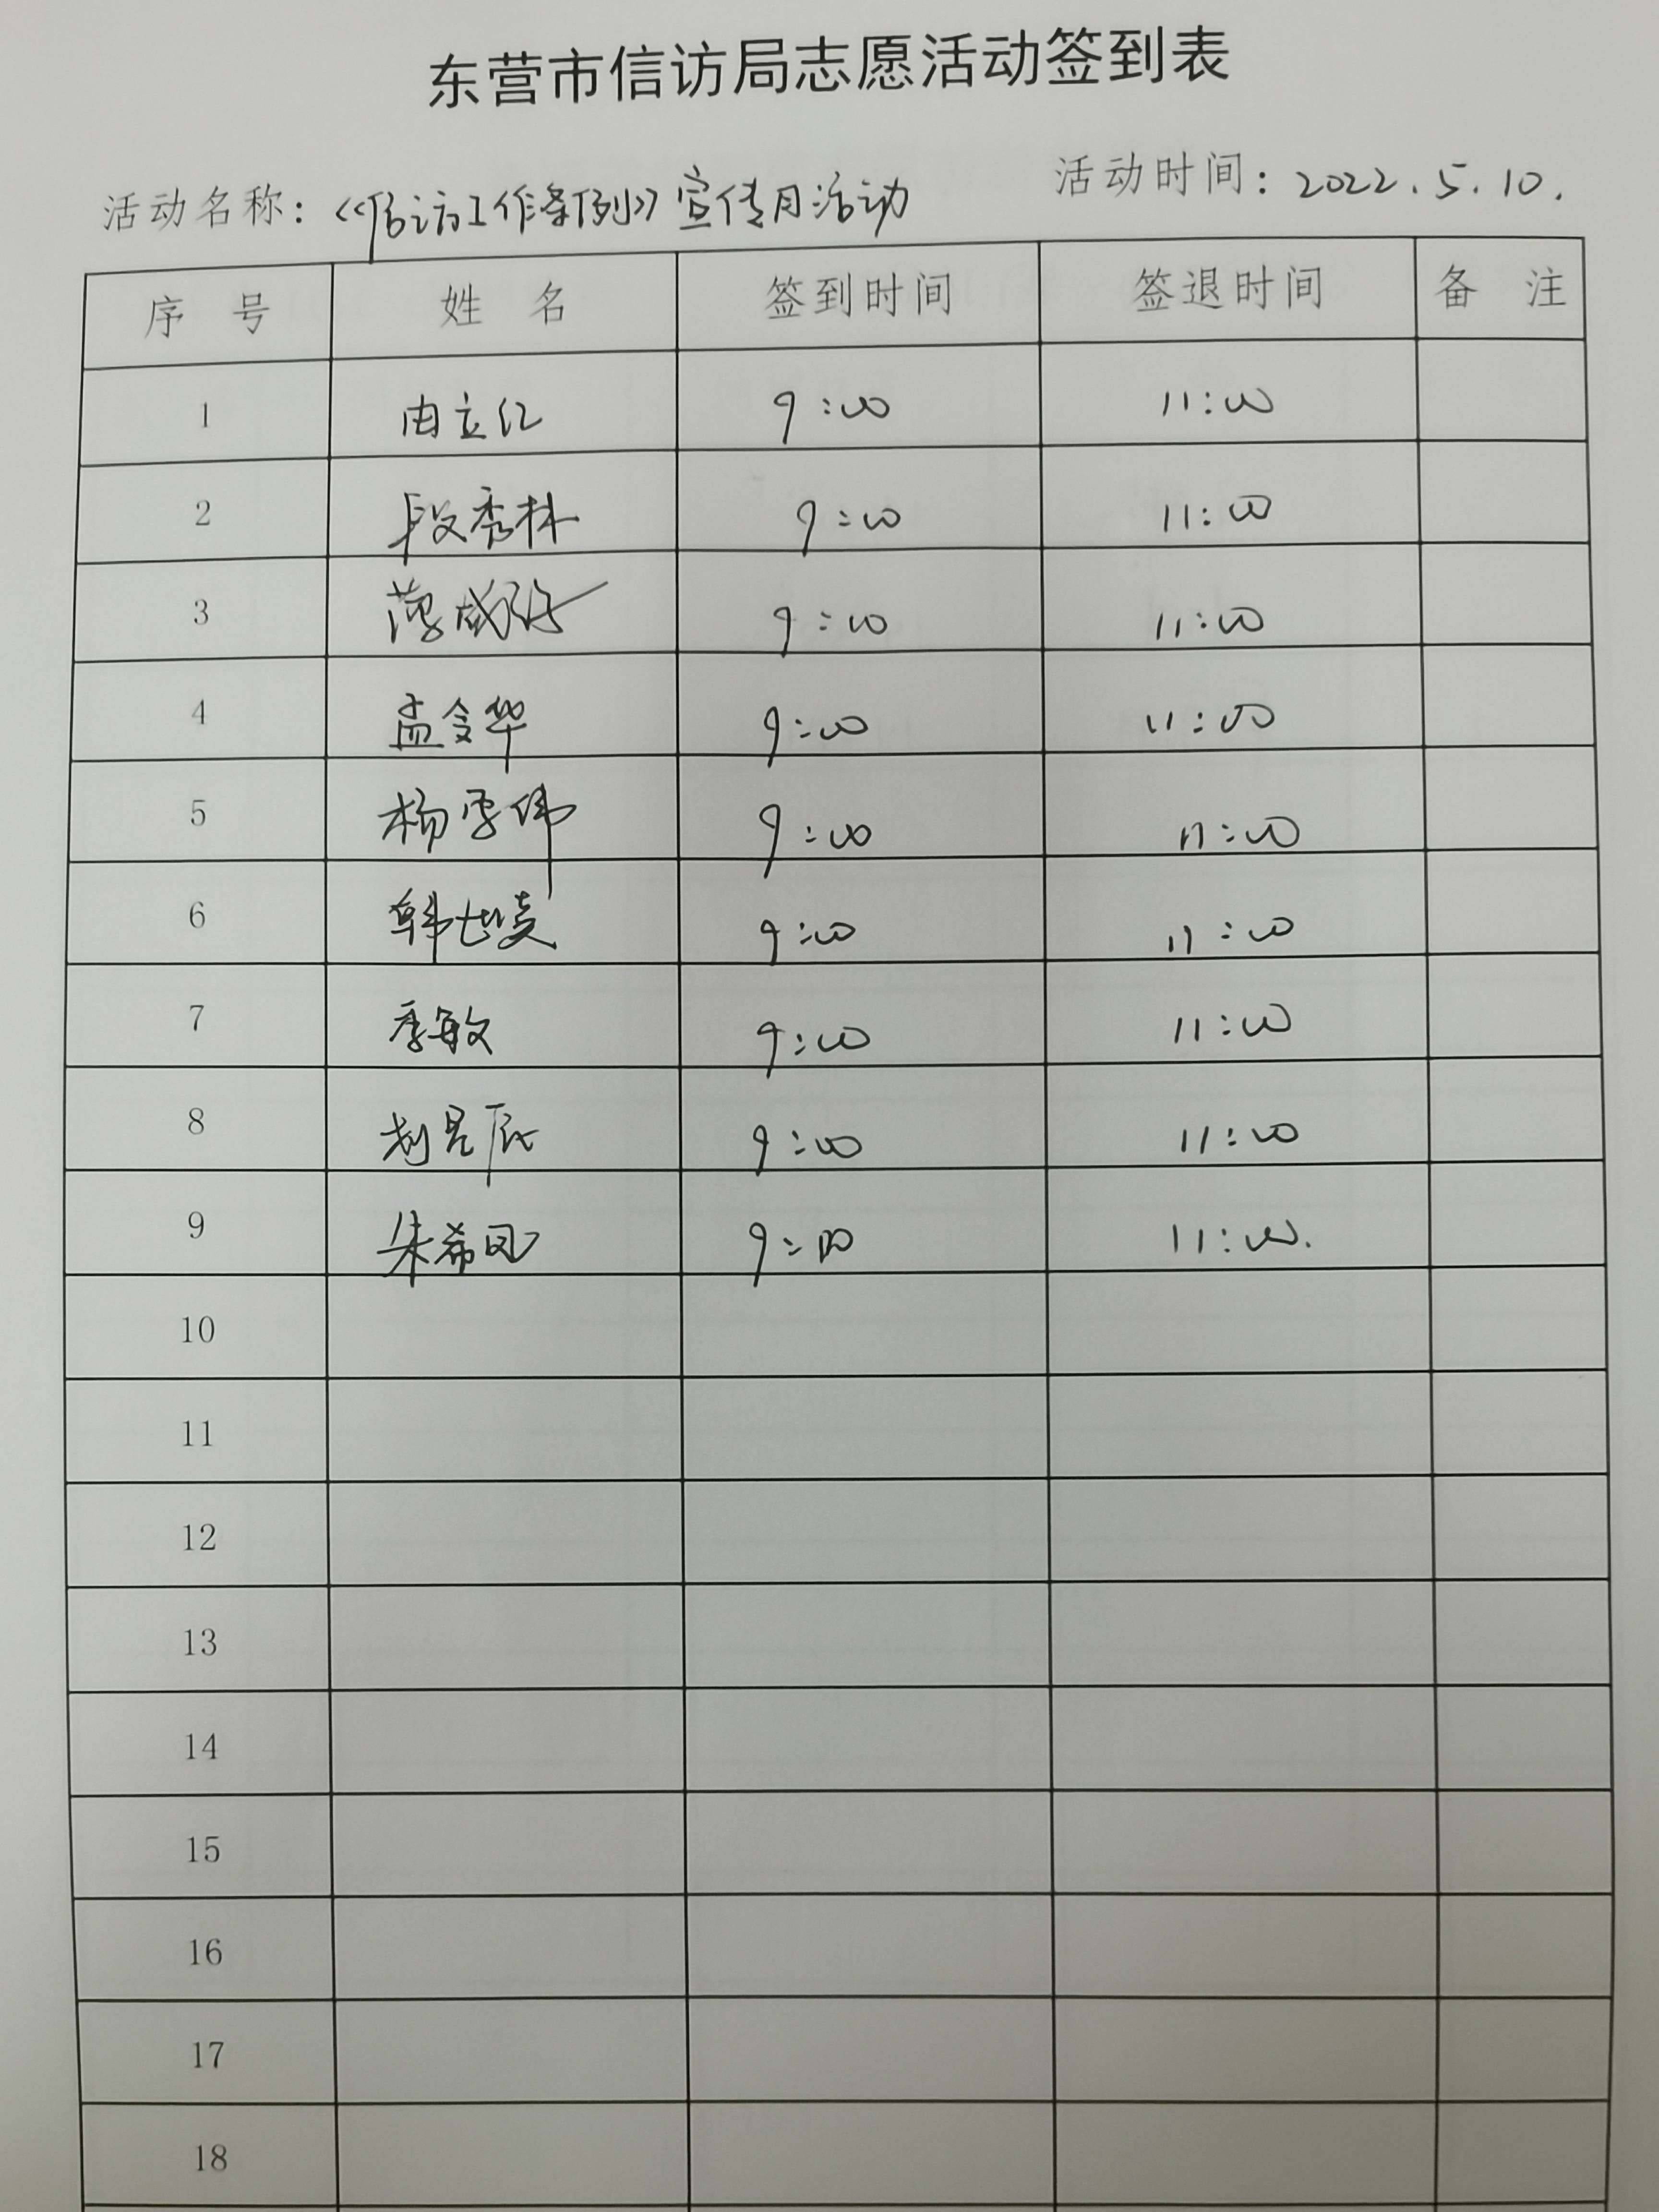 东营市信访局志愿活动签到表
活动名称：《信访工作条例》宣传月活动 活动时间：2022.5.10.
序 号 姓 名 签到时间 签退时间 备 注
1 由立红 9:00 11:00
2 段秀林 9:00 11:00
3 薄 9:00 11:00
4 孟令华 9:00 11:00
5 杨雪伟 9:00 11:00
6 韩世 9:00 11:00
7 季敏 9:00 11:00
8 刘昱辰 9:00 11:00
9 朱希凤 9:00 11:00.
10
11
12
13
14
15
16
17
18